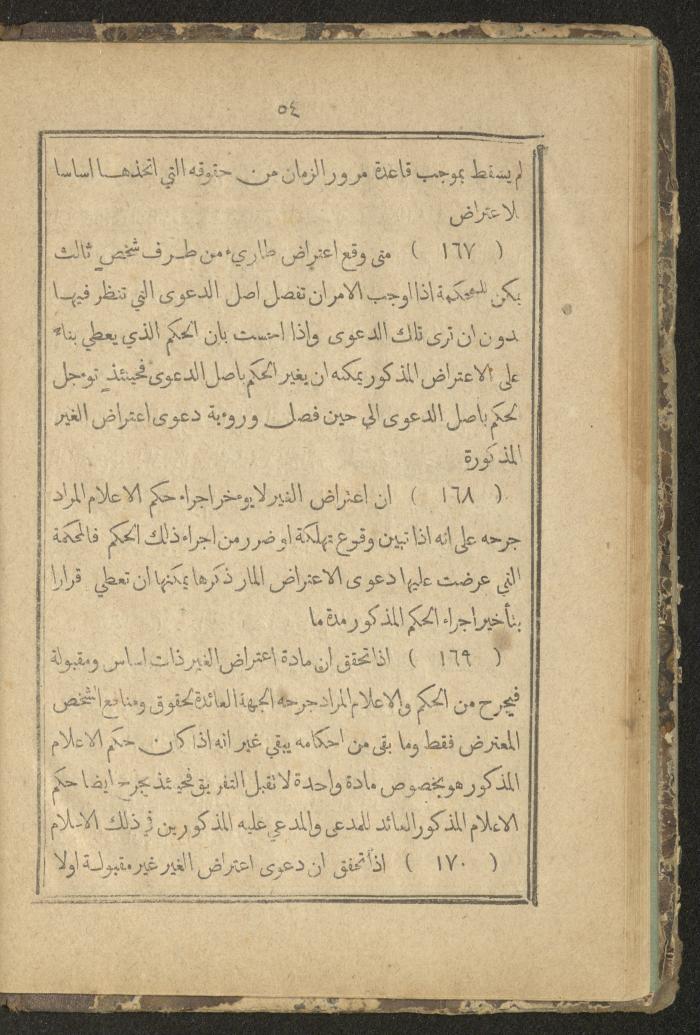 ٥٤
لم يسقط بموجب قاعدة مرور الزمان من حقوقه التي اتخذهــا اساسا
للاعتراض
( ١٦٧ ) متى وقع اعتراض طاريء من طرف شخص ثالث
يمكن للمحكمة اذا اوجب الامر ان تفصل اصل الدعوى التي تنظر فيهـا
بدون ان ترى تلك الدعوى واذا احست بان الحكم الذي يعطي بناءً
على الاعتراض المذكور يمكنه ان يغير الحكم باصل الدعوى فحينئذٍ توءجل
الحكم باصل الدعوى الى حين فصل وروءية دعوى اعتراض الغير
المذكورة
( ١٦٨ ) ان اعتراض الغير لا يوءخر اجراء حكم الاعلام المراد
جرحه على انه اذا تبين وقوع تهلكة او ضرر من اجراء ذلك الحكم فالمحكمة
التي عرضت عليها دعوى الاعتراض المار ذكرها يمكنها ان تعطي قرارا
بتأخير اجراء الحكم المذكور مدة ما
( ١٦٩ ) اذا تحقق ان مادة اعتراض الغير ذات اساس ومقبولة
فيجرح من الحكم والاعلام المراد جرحه الجهة العائدة لحقوق ومنافع الشخص
المعترض فقط وما بقى من احكامه يبقي غير انه اذا كان حكم الاعلام
المذكور هو بخصوص مادة واحدة لا تقبل التفريق فحينئذ يجرح ايضا حكم
الاعلام المذكور العائد للمدعى والمدعي عليه المذكورين في ذلك الاعلام
( ١٧٠ ) اذا تحقق ان دعوى اعتراض الغير غير مقبولـة اولا